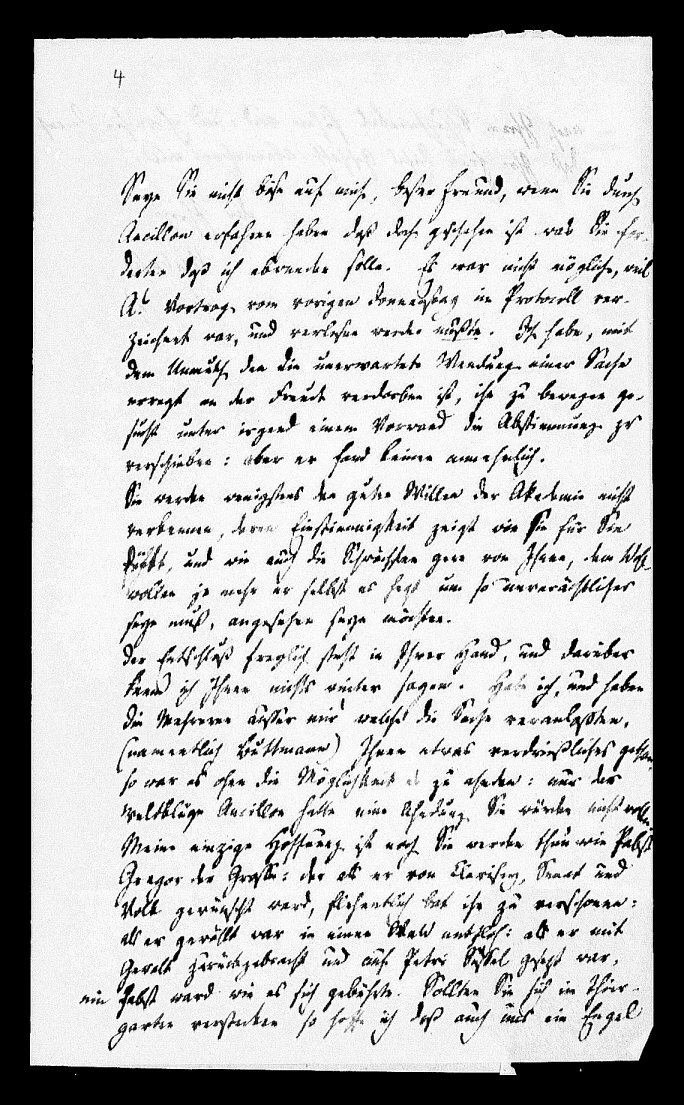 4
Seyn Sie nicht böse auf mich, bester Freund, wenn Sie durch
Ancillon erfahren haben daß doch geschehen ist was Sie for-
derten daß ich abwenden solle. Es war nicht möglich, weil
A's Vortrag vom vorigen Donnerstag im Protocoll ver-
zeichnet war, und verlesen werden mußte. Ich habe, mit
dem Unmuth den die unerwartete Wendung einer Sache
erregt an der Freude verdorben ist, ihn zu bewegen ge-
sucht unter irgend einem Vorwand die Abstimmung zu
verschieben: aber er fand keinen annehmlich.
Sie werden wenigstens den guten Willen der Akademie nicht
verkennen, deren Einstimmigkeit zeigt wie sie für Sie
fühlt, und wie auch die Schwächsten gern von Ihnen, dem Wohl-
wollen je mehr er selbst es hegt um so unverächtlicher
seyn muß, angesehen seyn möchten.
Der Entschluß freylich steht in Ihrer Hand, und darüber
kann ich Ihnen nichts weiter sagen. Habe ich, und haben
die Mehreren ausser mir welche die Sache veranlaßten,
(namentlich Buttmann) Ihnen etwas verdrießliches gethan
so war es ohne die Möglichkeit es zu ahnden: nur der
weltkluge Ancillon hatte eine Ahndung Sie würden nicht wollen
Meine einzige Hoffnung ist noch Sie werden thun wie Pabst
Gregor der Große: der als er von Clerisey, Senat und
Volk gewünscht ward, flehentlich bat ihn zu verschonen:
als er gewählt war in einen Wald entfloh: als er mit
Gewalt zurückgebracht und auf Petri Stuhl gesetzt war,
ein Pabst ward wie es sich gebührte. Sollten Sie sich im Thier-
garten verstecken so hoffe ich daß auch uns ein Engel